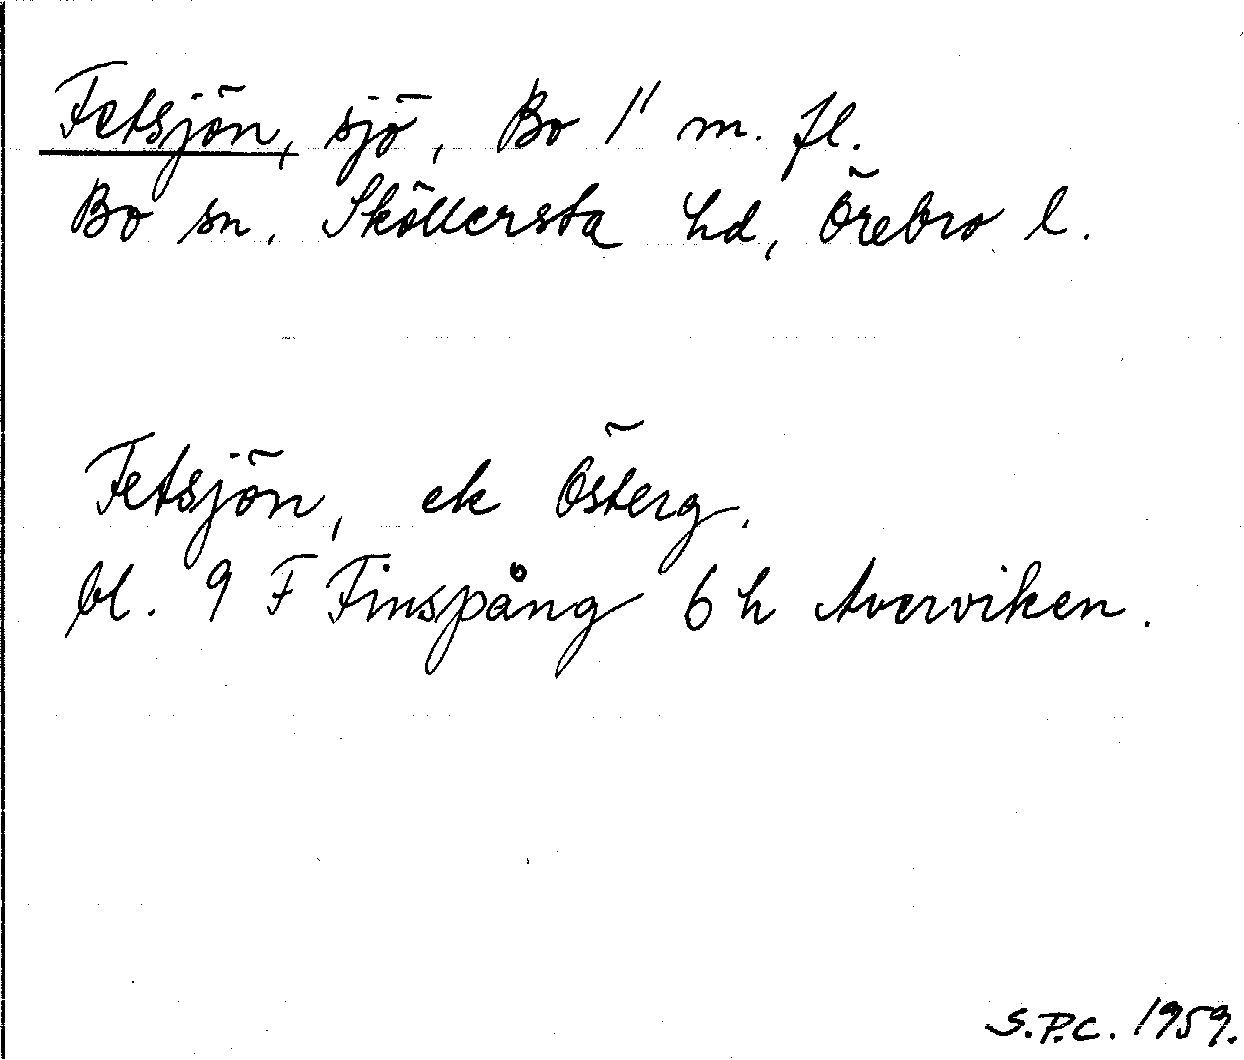 Fetsjön, sjö, Bo 1¹ m. fl.
Bo sn. Sköllersta hd, Örebro l.
Fetsjön, ek Österg.
bl. 9 F Finspång 6 h Averviken.
S.P.C. 1959.